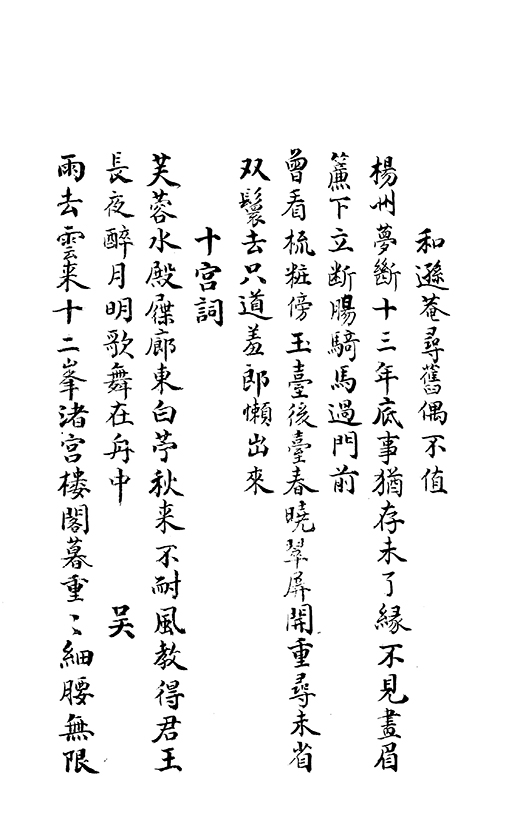 和遜菴尋舊偶不值
楊州夢斷十三年底事猶存未了緣不見畫眉
簾下立断腸騎馬過門前
曾看梳粧傍玉臺後臺春曉翠屏開重尋未省
双鬟去只道羞郎懶出來
十宮詞
芙蓉水殿屧廊東白苧秋来不耐風教得君王
長夜醉月明歌舞在舟中 吴
雨去雲来十二峯渚宮樓閣暮重〻細腰無限